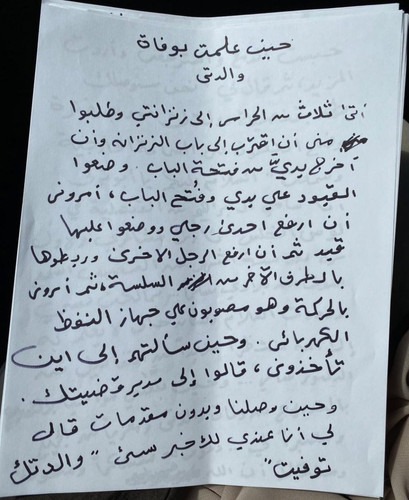 حين علمت بوفاة
والدتي
أتى ثلاث من الحراس إلى زنزانتي وطلبوا
مني أن اقترب إلى باب الزنزانه وأن
أخرج يديَّ من فتحة الباب. وضعوا
القيود علي يدي وفُتح الباب، أمروني
أن ارفع احدى رجلي ووضعوا عليها
قيد ثم أن ارفع الرجل الاخرى وربطوها
بالطرف الآخر من السلسة، ثم أمروني
بالحركة وهو مصوبون علي جهاز النفظ
الكهربائي. وحين سألتهم إلى اين
تأخذوني، قالوا إلى مدير قضيتك.
وحين وصلنا وبدون مقدمات قال
لي أنا عندي لك خبر سئ "والدتك
توفيت"